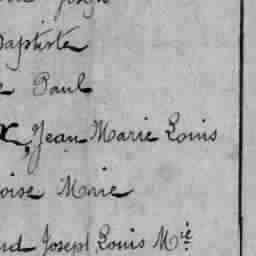 Joseph
Baptiste
Paul
x, Jean Marie Louis
oise Marie
nd Joseph Louis Mie